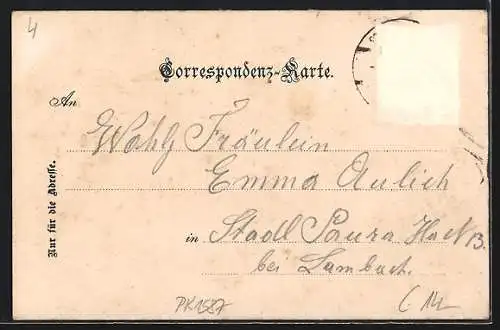 4
Correspondenz-Karte.
An
Wohlg Fräulein
Emma Aulich
in Stadl Paura Haus N 13.
bei Lambach.
Nur für die Adresse.
PK1587